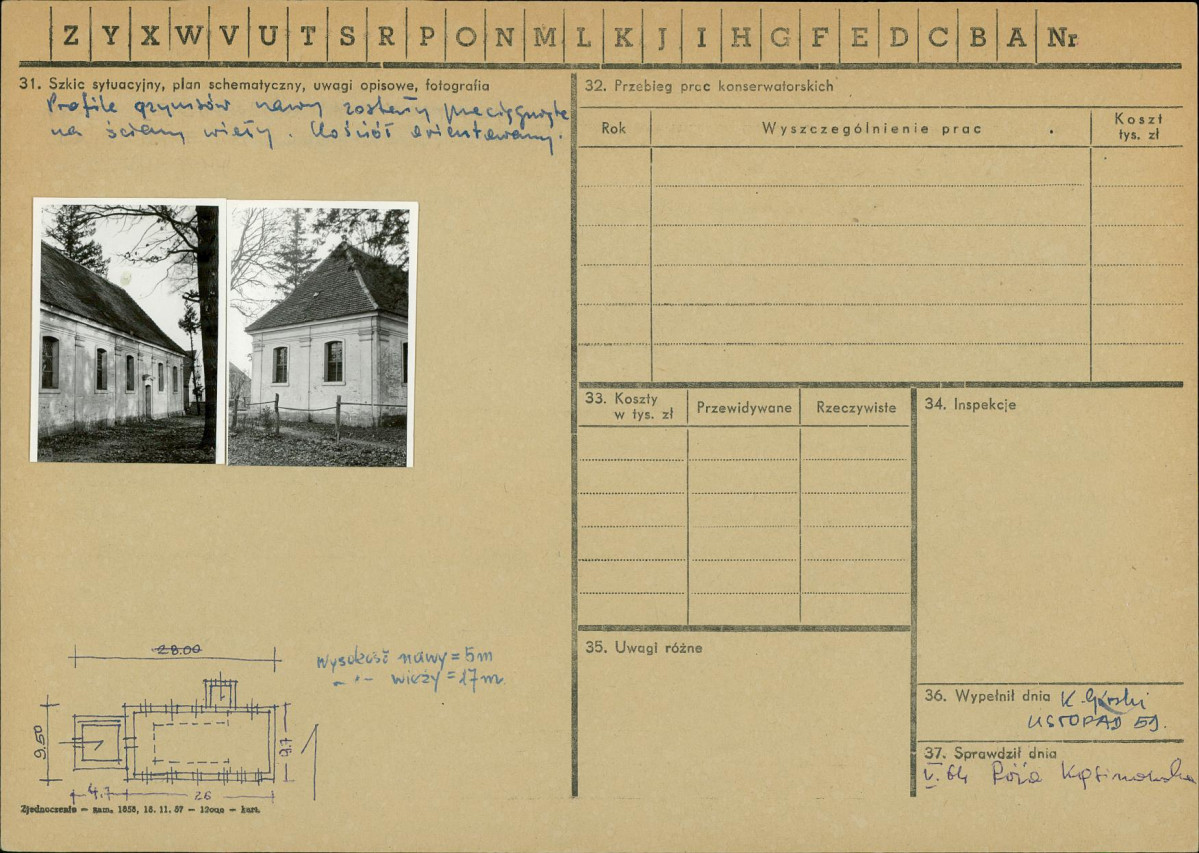 Z Y X W V U T S R P O N M L K J I H G F E D C B A Nr
31. Szkic sytuacyjny, plan schematyczny, uwagi opisowe, fotografia
Profile gzymsów nawy zostały przeciągnięte
na ściany wieży. Kościół orientowany.
28.00
Wysokość nawy = 5 m
-"- wieży = 17 m.
9.50
9.7
4.7
26
Zjednoczenie – zam. 1858, 18. 11. 57 – 12000 – kart.
32. Przebieg prac konserwatorskich
Rok
Wyszczególnienie prac
Koszt
tys. zł
33. Koszty
w tys. zł
Przewidywane
Rzeczywiste
34. Inspekcje
35. Uwagi różne
36. Wypełnił dnia K. Górski
LISTOPAD 59.
37. Sprawdził dnia
V. 64 Róża